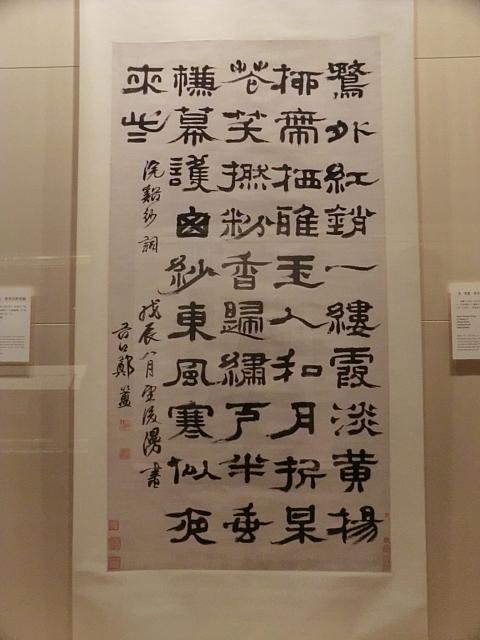 鶩外紅銷一縷霞淡黃揚
桺帶栖雅玉人和月折呆
花笑撚粉香歸繡戶半垂
槏幕護囱紗東風寒似夜
來些
浣谿紗詞 戊辰八月望後漫書
谷口鄭簠